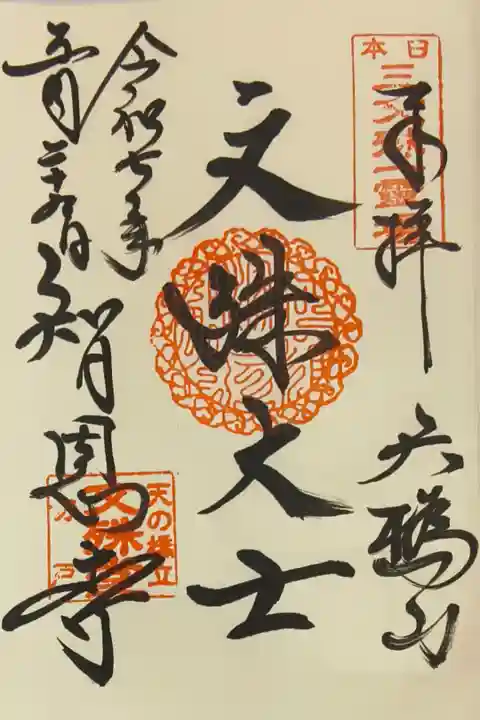 日本
三文殊第一霊場
奉拝
天橋山
文殊大士
令和七年
五月二十九日
智恩寺
天の橋立
文殊堂